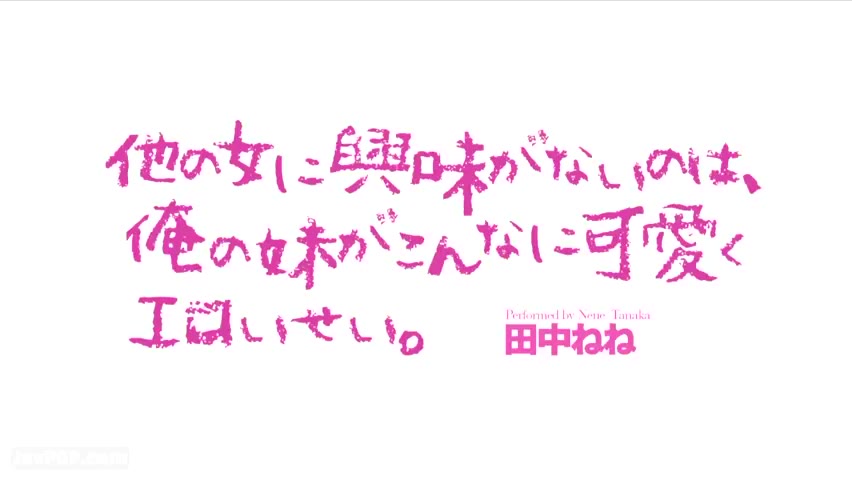 他の女に興味がないのは、
俺の妹がこんなに可愛く
エロいせい。
Performed by Nene Tanaka
田中ねね
JavPOP.com